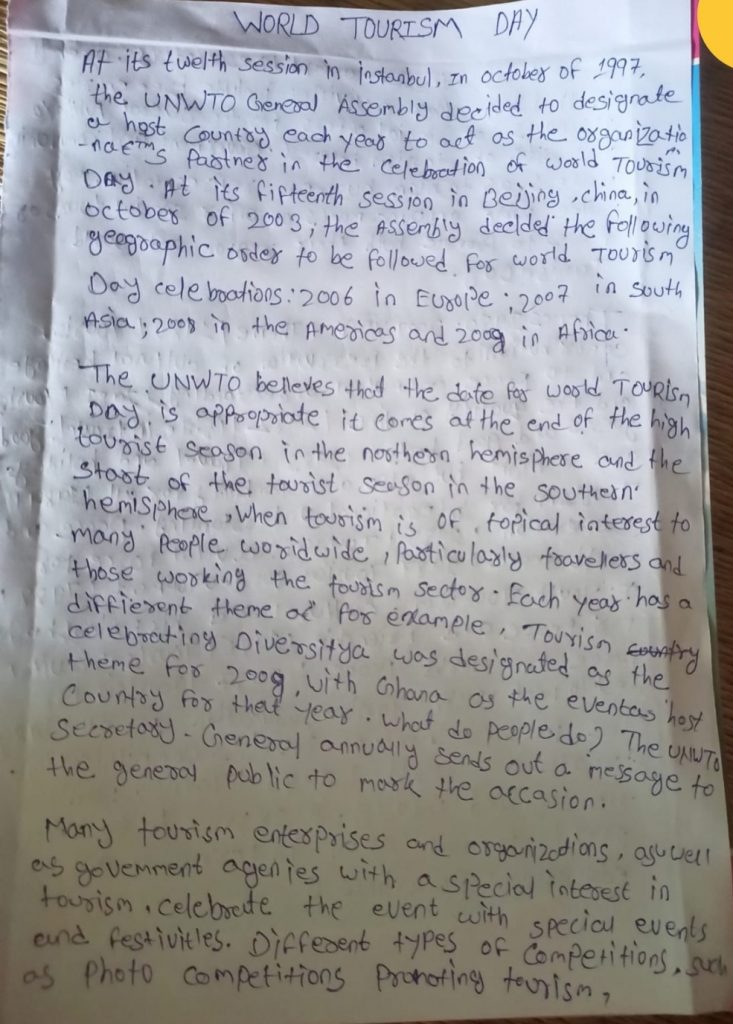 WORLD TOURISM DAY
At its twelth session in istanbul, In october of 1997,
the UNWTO General Assembly decided to designate
a host Country each year to act as the organizatio
-naems Partner in the celebration of world Tourism
Day. At its fifteenth session in Beijing, china, in
october of 2003, the Assembly decided the following
geographic order to be followed for world Tourism
Day celeboations: 2006 in Europe; 2007 in south
Asia; 2008 in the Americas and 2009 in Africa.
The UNWTO belleves that the date for world Tourism
Day is appropriate it comes at the end of the high
tourist season in the northern hemisphere and the
start of the tourist season in the southern
hemisphere, when tourism is of topical interest to
many people woridwide, particularly travellers and
those working the tourism sector. Each year has a
diffierent theme for example, Tourism
celebrating Diversitya was designated as the
theme for 2009, with Ghana as the eventas host
Country for that year. what do people do? The UNWTO
Secretary-General annually sends out a message to
the general public to mark the accasion.
Many tourism enterprises and organizations, as well
as govemment agenies with a special interest in
tourism, celebrate the event with special events
and festivities. Different types of competitions, such
as photo competitions promoting tourism,